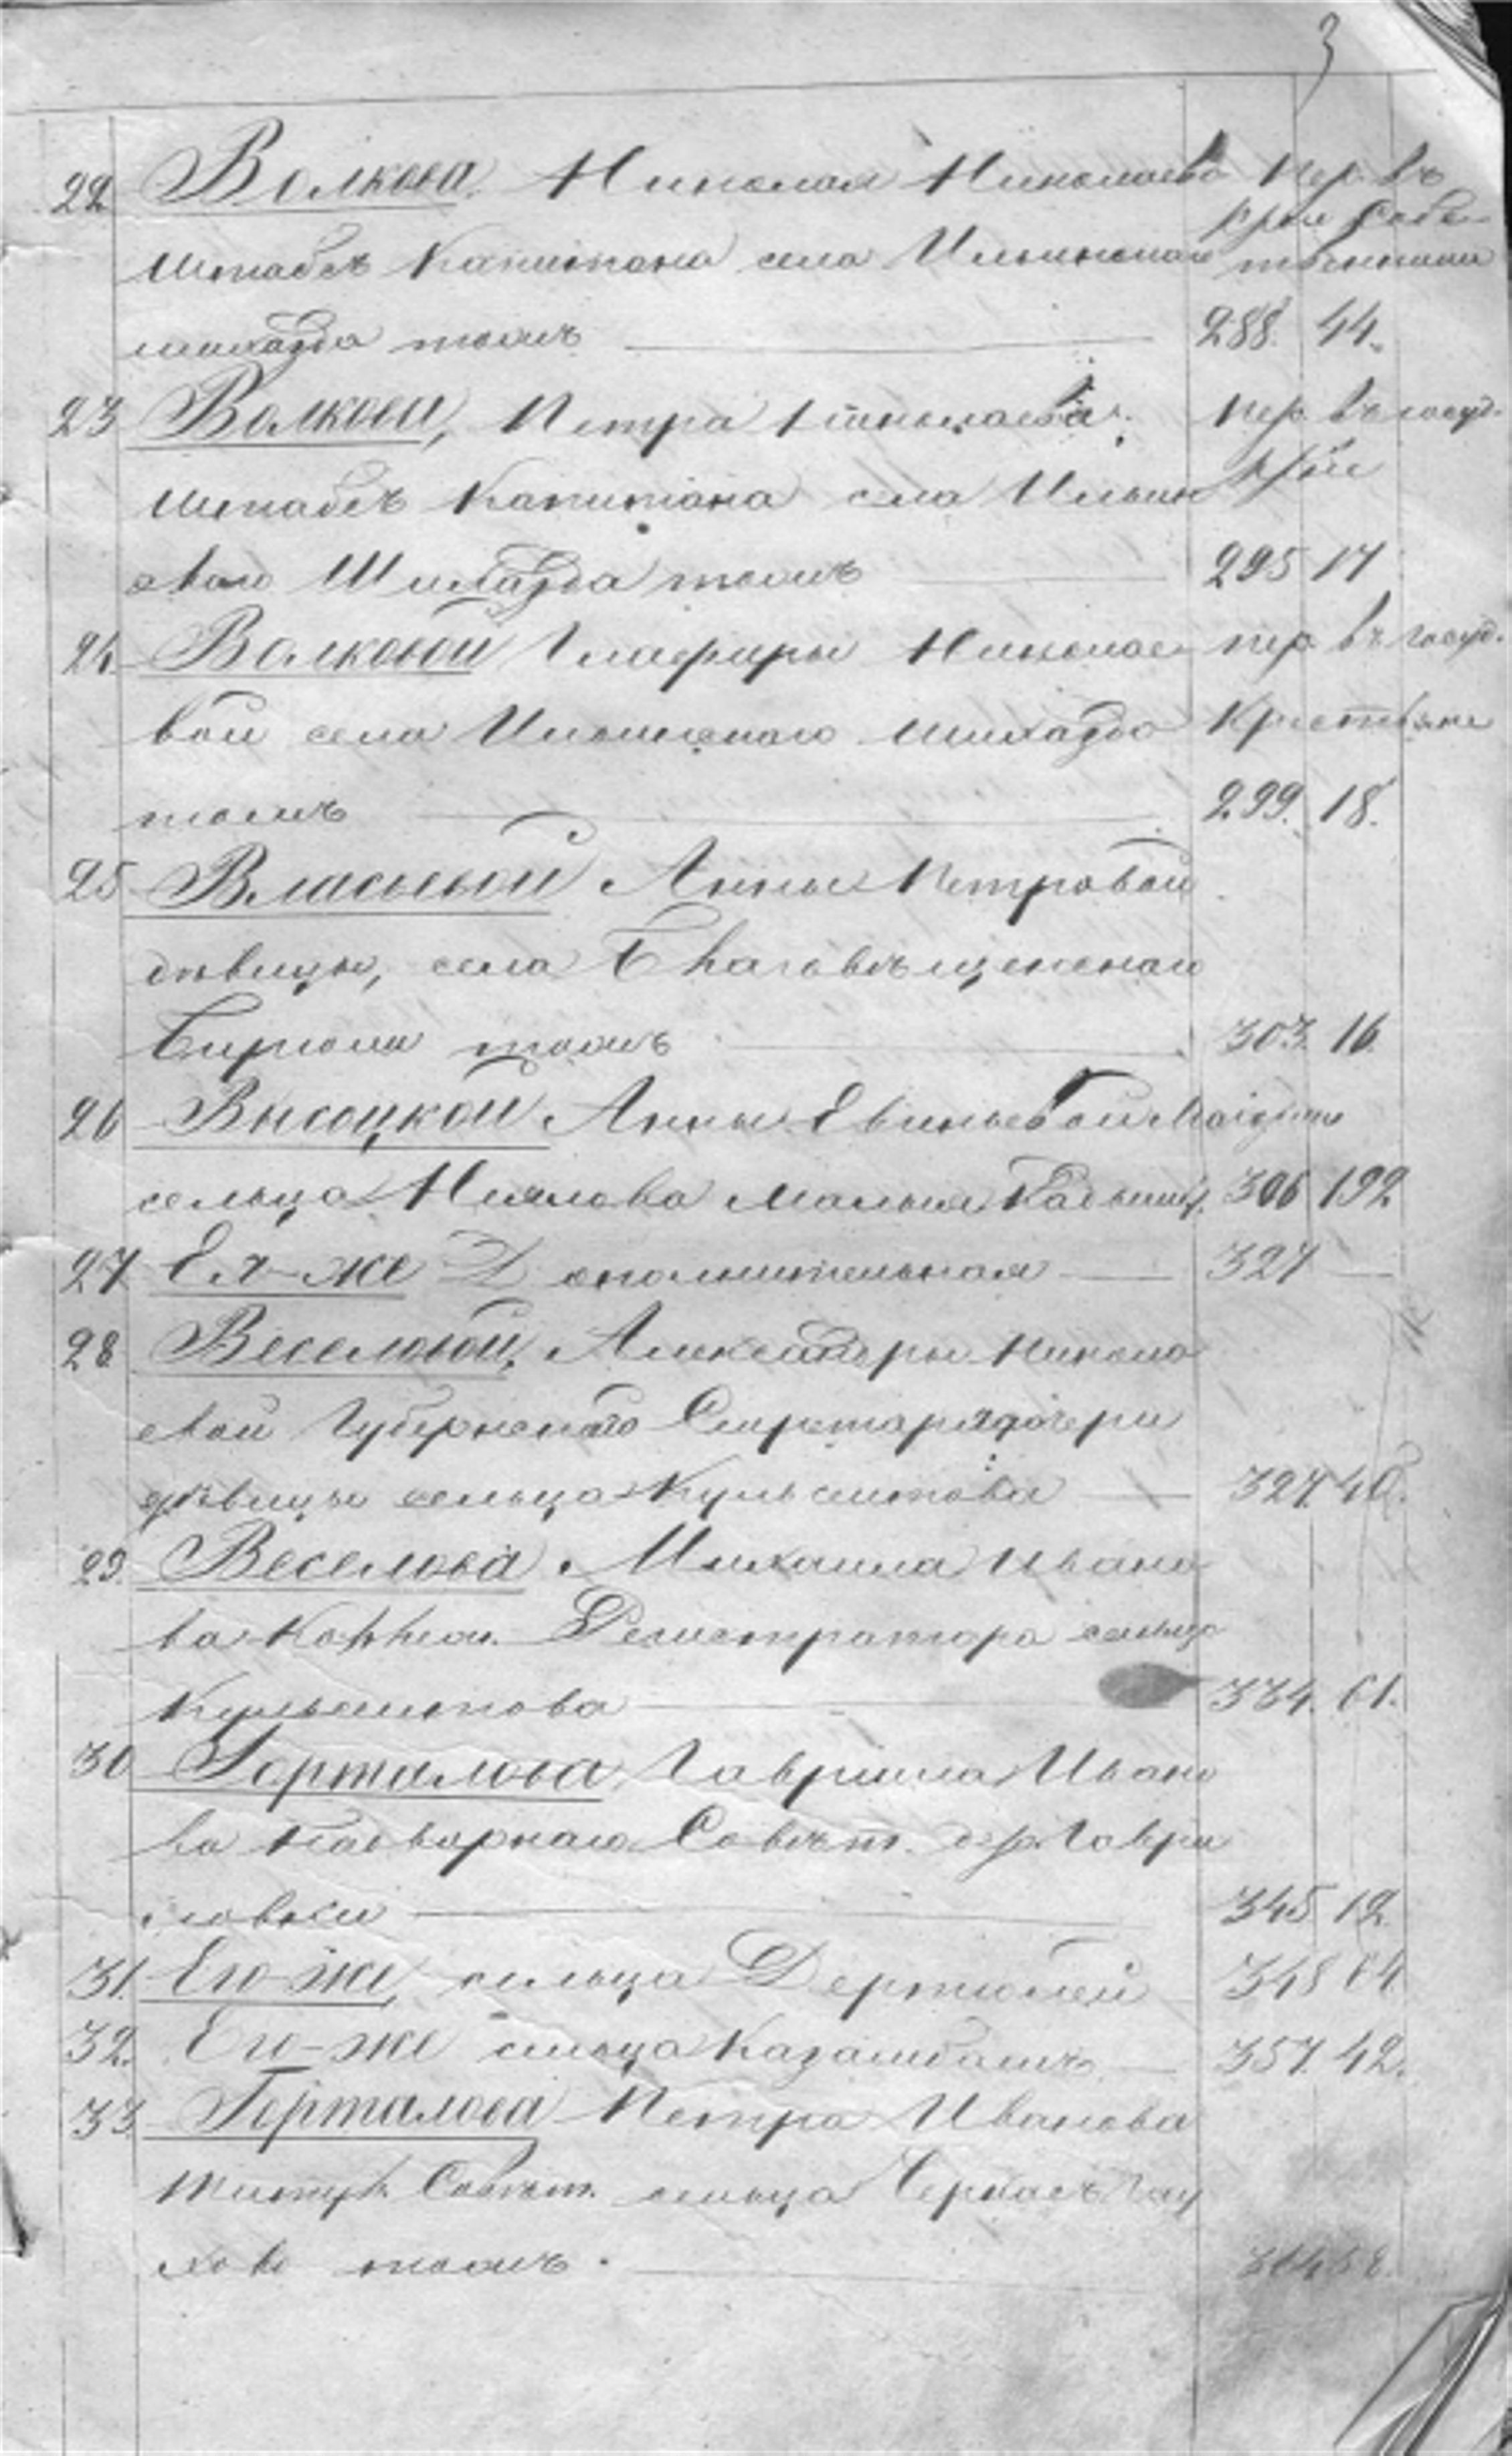 3
22 Волкова Николая Николаева пер. въ
Штабсъ Капитана села Ильинскаго
Шихазда тожъ 288. 44.
23 Волкова, Петра Николаева пер. въ госуд.
Штабсъ Капитана села Ильин
скаго Шихазда тожъ 295 17
24. Волковой Глафиры Николае пер. въ госуд.
вой села Ильинскаго Шихазда Крестьяне
тожъ 299. 18.
25 Власьевой Анны Петровой
дѣвицы, села Благовѣщенскаго
Бирюли тожъ 303. 16.
26 Высоцкой Анны Евгеньевой
сельца Нилова Малыя 306 192
27. Ея-же Дополнительная 327
28. Веселовой, Александры Никола
евой Губернскаго Секретаря дочери
дѣвицы сельца Кульсеитова 327. 40.
29. Веселова Михаила Ивано
ва Коллеж. Регистратора сельца
Кульсеитова 334. 61.
30 Горталова Гавриила Ивано
ва Надворнаго Совѣт. дер. Гаври
ловки 345 12
31. Его-же сельца Дертюлей 348 64
32. Его-же сельца Казанбашъ 357. 42.
33. Горталова Петра Иванова
Титул. Совѣт. сельца
тожъ.